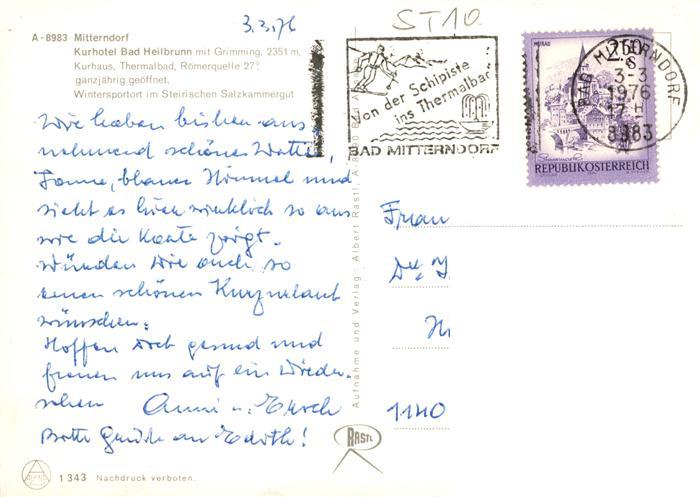 3.3.76
ST10.
A-8983 Mitterndorf
Kurhotel Bad Heilbrunn mit Grimming, 2351 m,
Kurhaus, Thermalbad, Römerquelle 27°,
ganzjährig geöffnet,
Wintersportort im Steirischen Salzkammergut
Von der Schipiste
ins Thermalbad
BAD MITTERNDORF
MURAU
2.50
S
REPUBLIK ÖSTERREICH
BAD MITTERNDORF
3-3
1976
8983
Wir haben bisher aus-
nehmend schönes Wetter,
Sonne, blauer Himmel und
sieht es hier wirklich so aus
wie die Karte zeigt.
Würden Dir auch so
einen schönen Kurzurlaub
wünschen.
Hoffen Dich gesund und
freuen uns auf ein Wieder-
sehen Anni u. Erich
Bitte Grüße an Edith!
Frau
1140
Aufnahme und Verlag: Albert Rastl,
RASTL
1343 Nachdruck verboten.